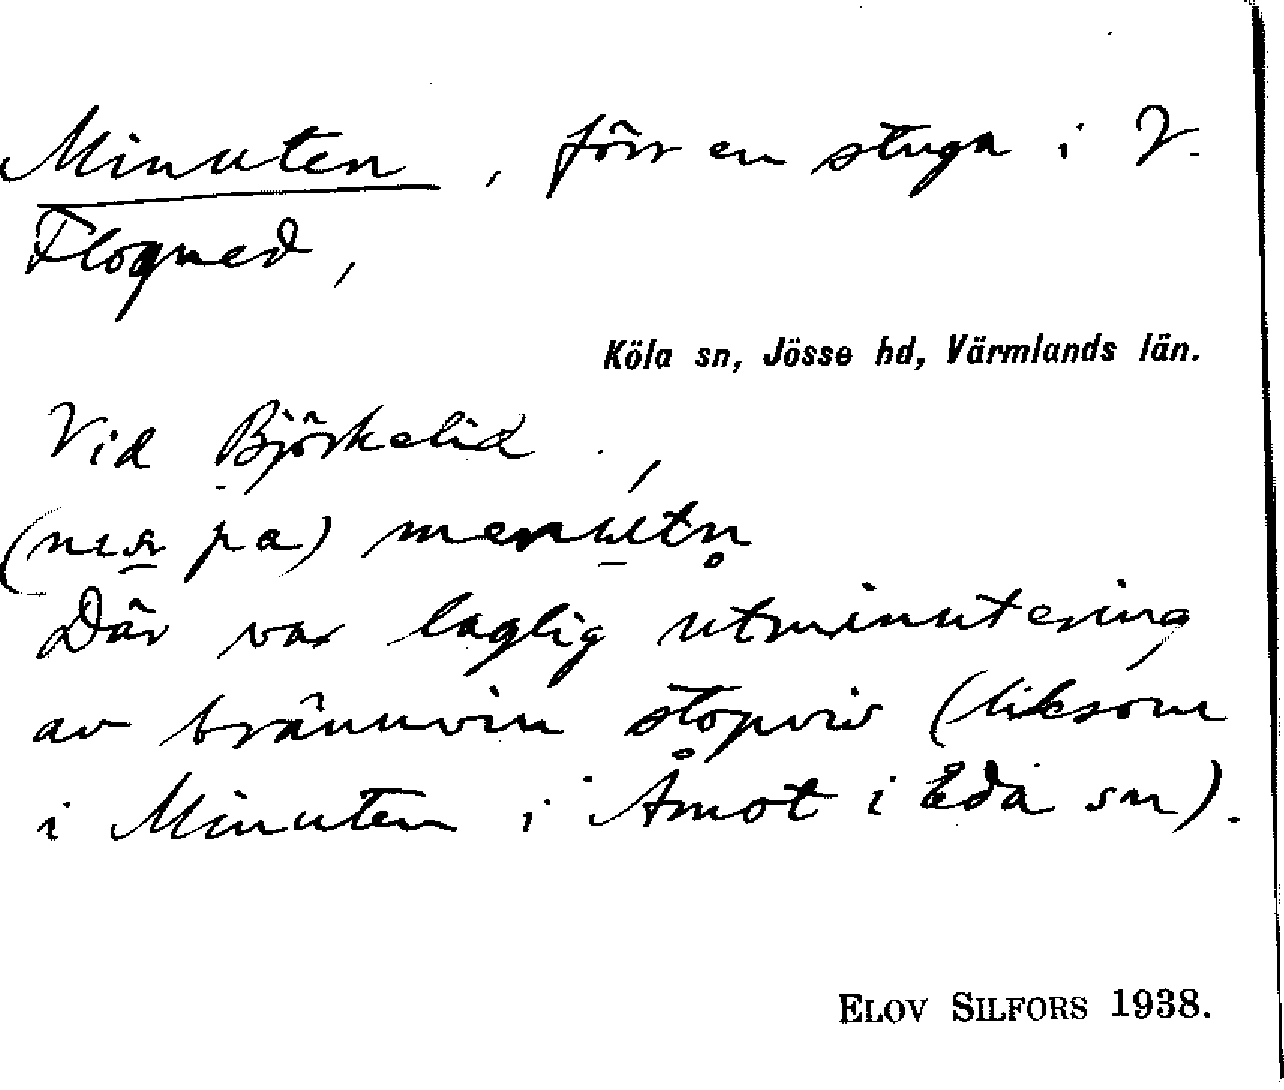 Minuten, förr en stuga i V.
Flogned,
Köla sn, Jösse hd, Värmlands län.
Vid Björkelid
pa)
Där var laglig utminutering
av brännvin stopvis (liksom
i Minuten i Åmot i Eda sn).
ELOV SILFORS 1938.